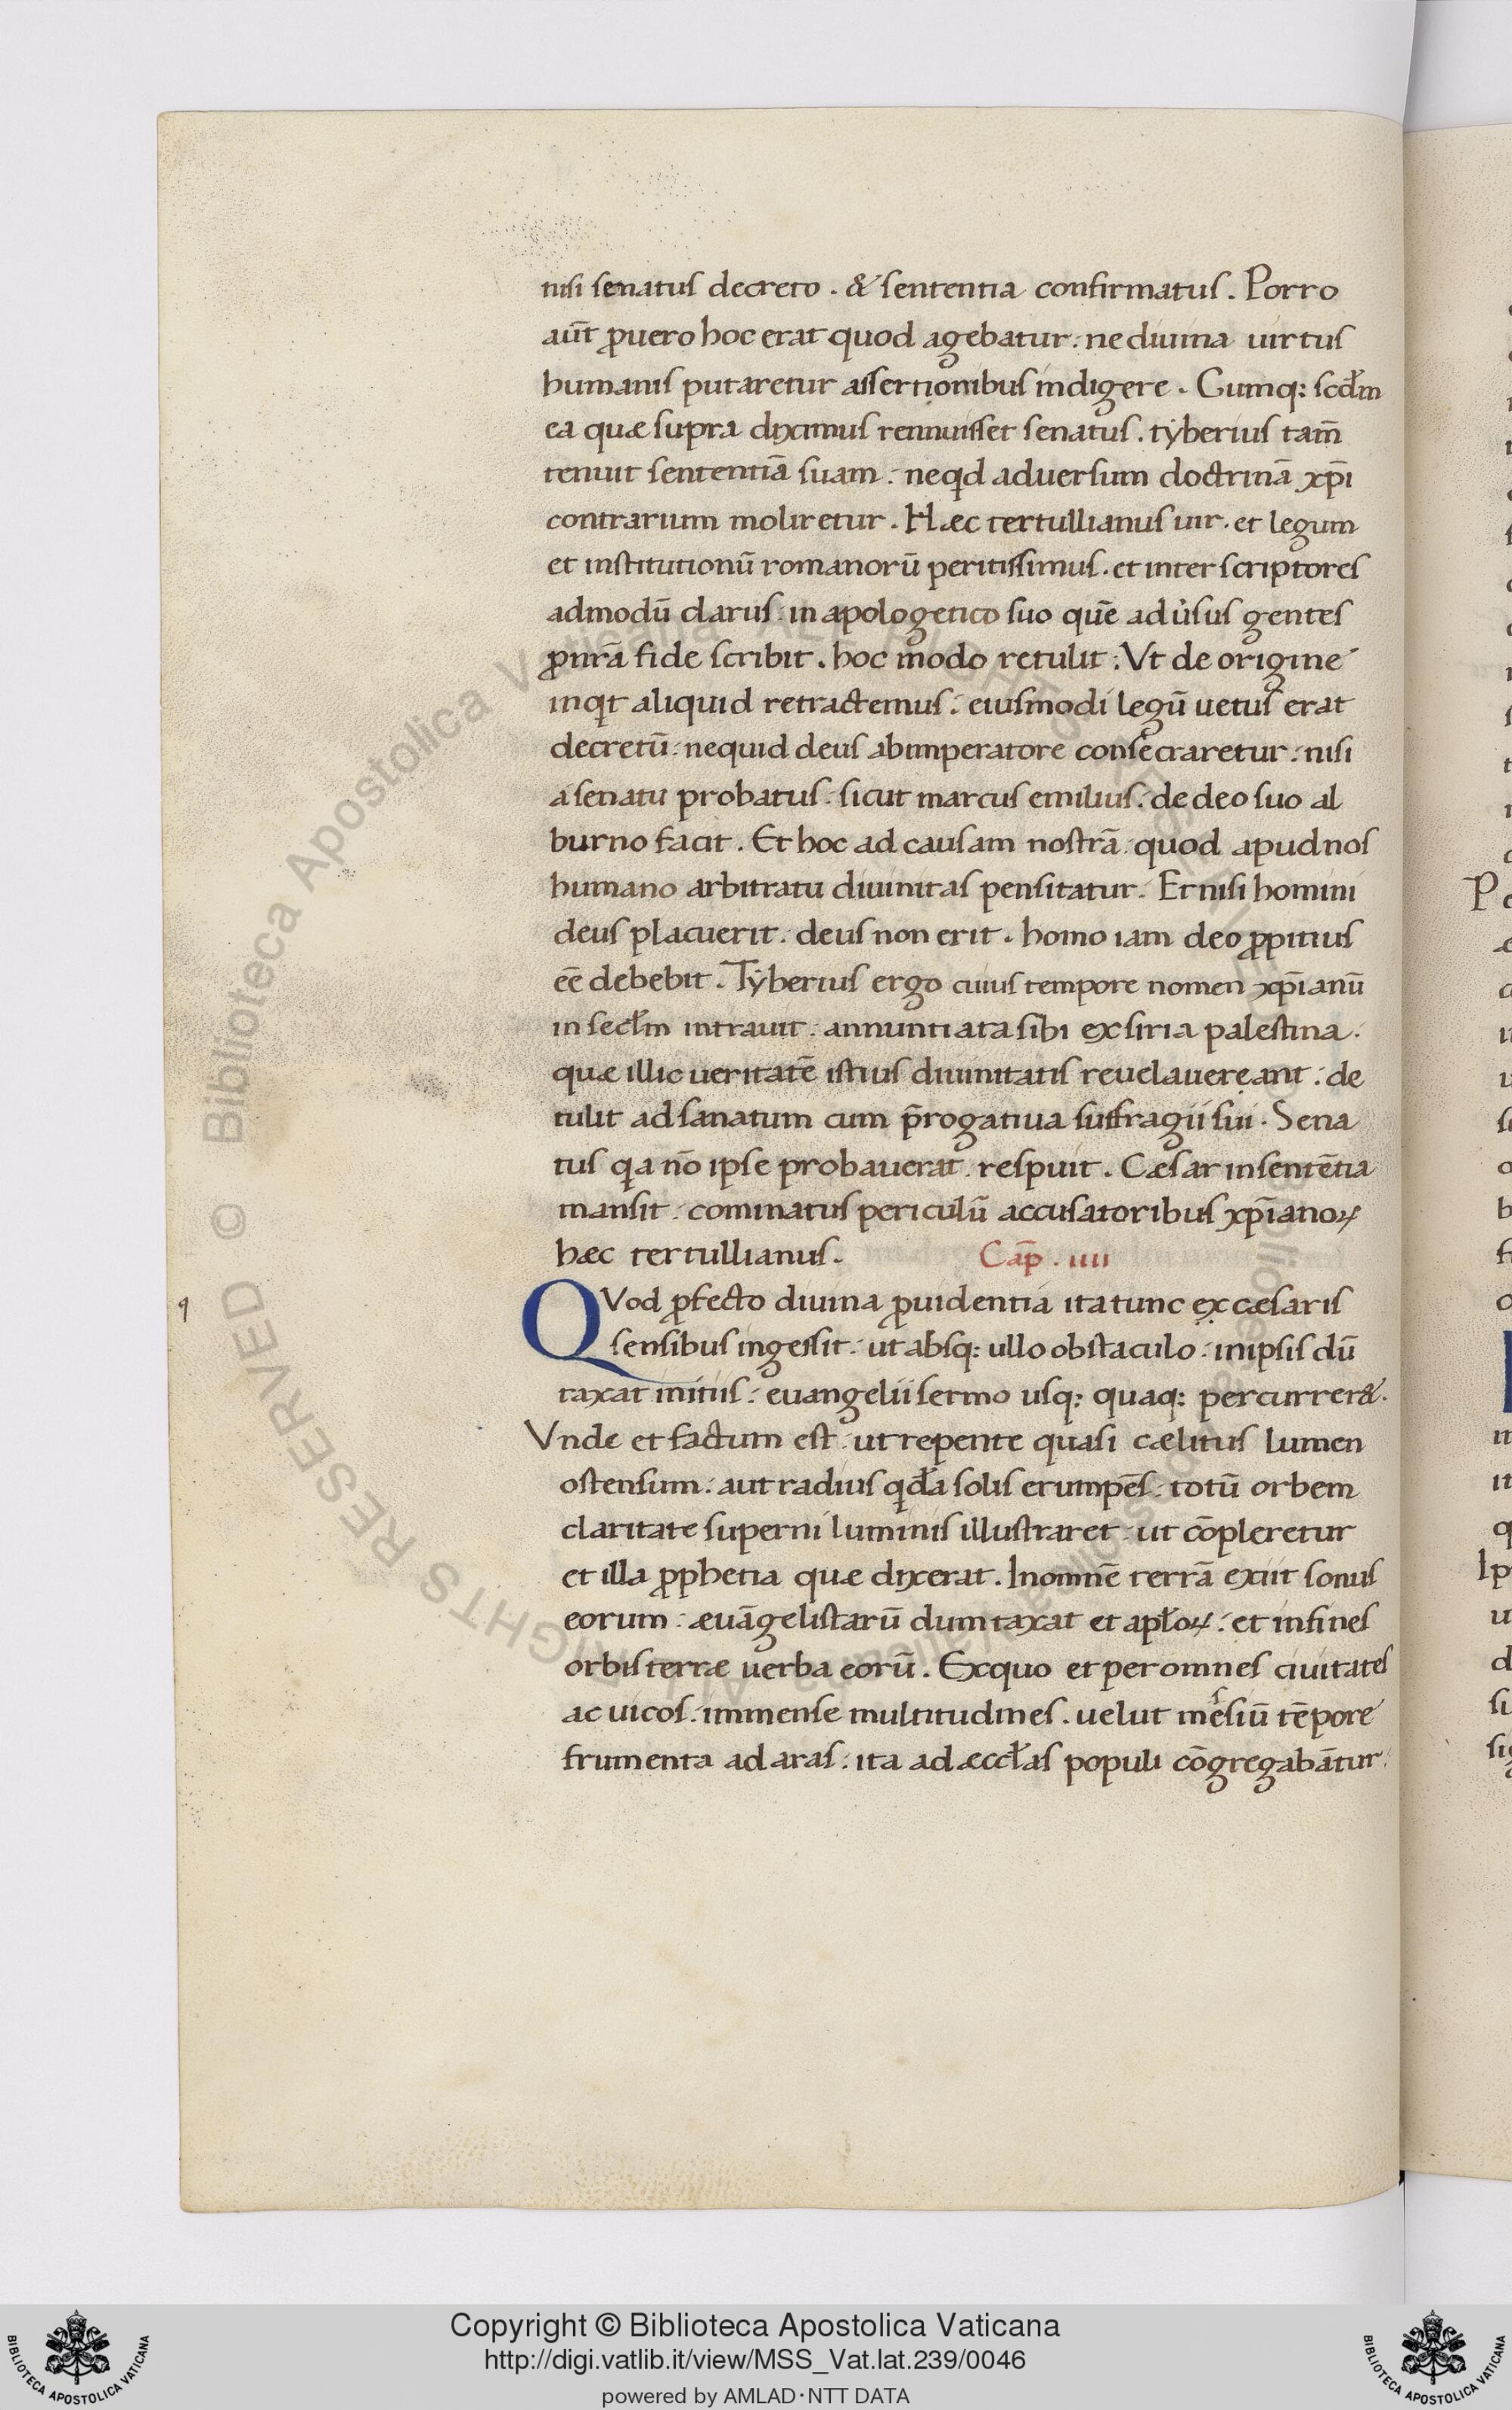 nisi senatus decreto . & sententia confirmatus . Porro
aut̄ ꝓuero hoc erat quod agebatur : ne diuina uirtus
humanis putaretur assertionibus indigere . Cumq; scd̄m
ea quæ supra diximus rennuisset senatus . tyberius tam̄
tenuit sententiā suam : neqd aduersum doctrinā xp̄i
contrarium moliretur . Hæc tertullianus uir . et legum
et institutionū romanorū peritissimus . et inter scriptores
admodū clarus . in apologetico suo quē adu̓sus gentes
ꝓnrā fide scribit . hoc modo retulit : Vt de origine
inqt aliquid retractemus : eiusmodi legū uetus erat
decretū : nequid deus abimperatore consecraretur : nisi
a senatu probatus . sicut marcus emilius : de deo suo al
burno facit . Et hoc ad causam nostrā . quod apud nos
humano arbitratu diuinitas pensitatur . Et nisi homini
deus placuerit . deus non erit . homo iam deo ꝓpitius
eē debebit . Tyberius ergo cuius tempore nomen xp̄ianū
in secłm intrauit . annuntiata sibi ex siria palestina .
quæ illic ueritatē istius diuinitatis reuelauereant : de
tulit ad sanatum cum p̄rogatiua suffragii sui . Sena
tus qa nō ipse probauerat . respuit . Cæsar in sentētia
mansit . cominatus periculū accusatoribus xp̄ianoꝝ
hæc tertullianus .
Cap̄ . iiii
QVod ꝓfecto diuina ꝓuidentia ita tunc ex cæsaris
9
sensibus ingessit . ut absq; ullo obstaculo . in ipsis dū
taxat initiis : euangelii sermo usq; quaq; percurrer& .
Vnde et factum est . ut repente quasi cælitus lumen
ostensum : aut radius qdā solis erumpēs . totū orbem
claritate superni luminis illustraret . ut cōpleretur
et illa ꝓphetia quæ dixerat . Inomnē terrā exiit sonus
eorum : æuāgelistarū dum taxat et apłoꝝ : et in fines
orbis terræ uerba eorū . Ex quo et per omnes ciuitates
ac uicos : immense multitudines . uelut mesiū tēpore
frumenta ad aras : ita ad æccłas populi cōgregabāntur .
Copyright © Biblioteca Apostolica Vaticana
http://digi.vatlib.it/view/MSS_Vat.lat.239/0046
powered by AMLAD·NTT DATA